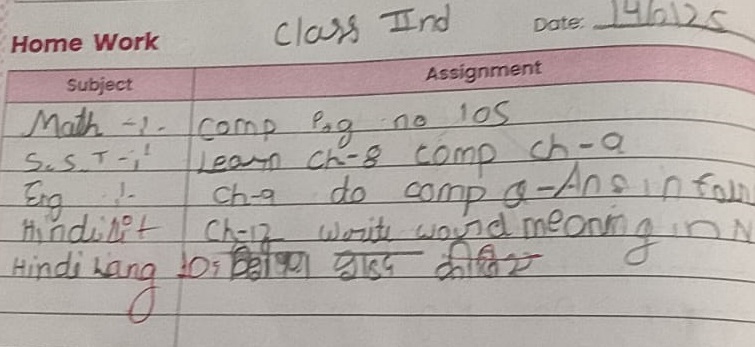 Home Work Class IInd Date: 14/
Subject Assignment
Math -:- comp Pag no 105
S.S.T -:- Learn ch-8 comp ch-9
Eng :- Ch-9 do comp Q-Ans in fain
Hindi Lit Ch-12 write word meaning in N
Hindi Lang शब्द